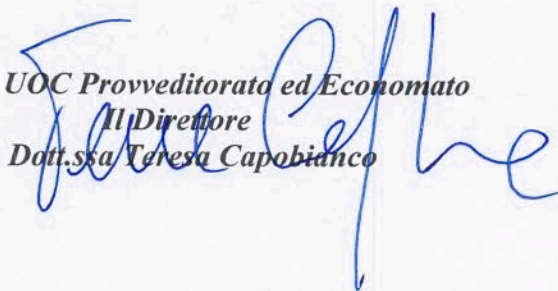 UOC Provveditorato ed Economato
Il Direttore
Dott.ssa Teresa Capobianco